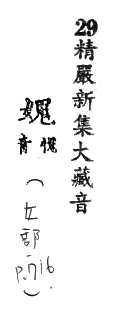 29精嚴新集大藏音
媿愧音(女部.p.716)